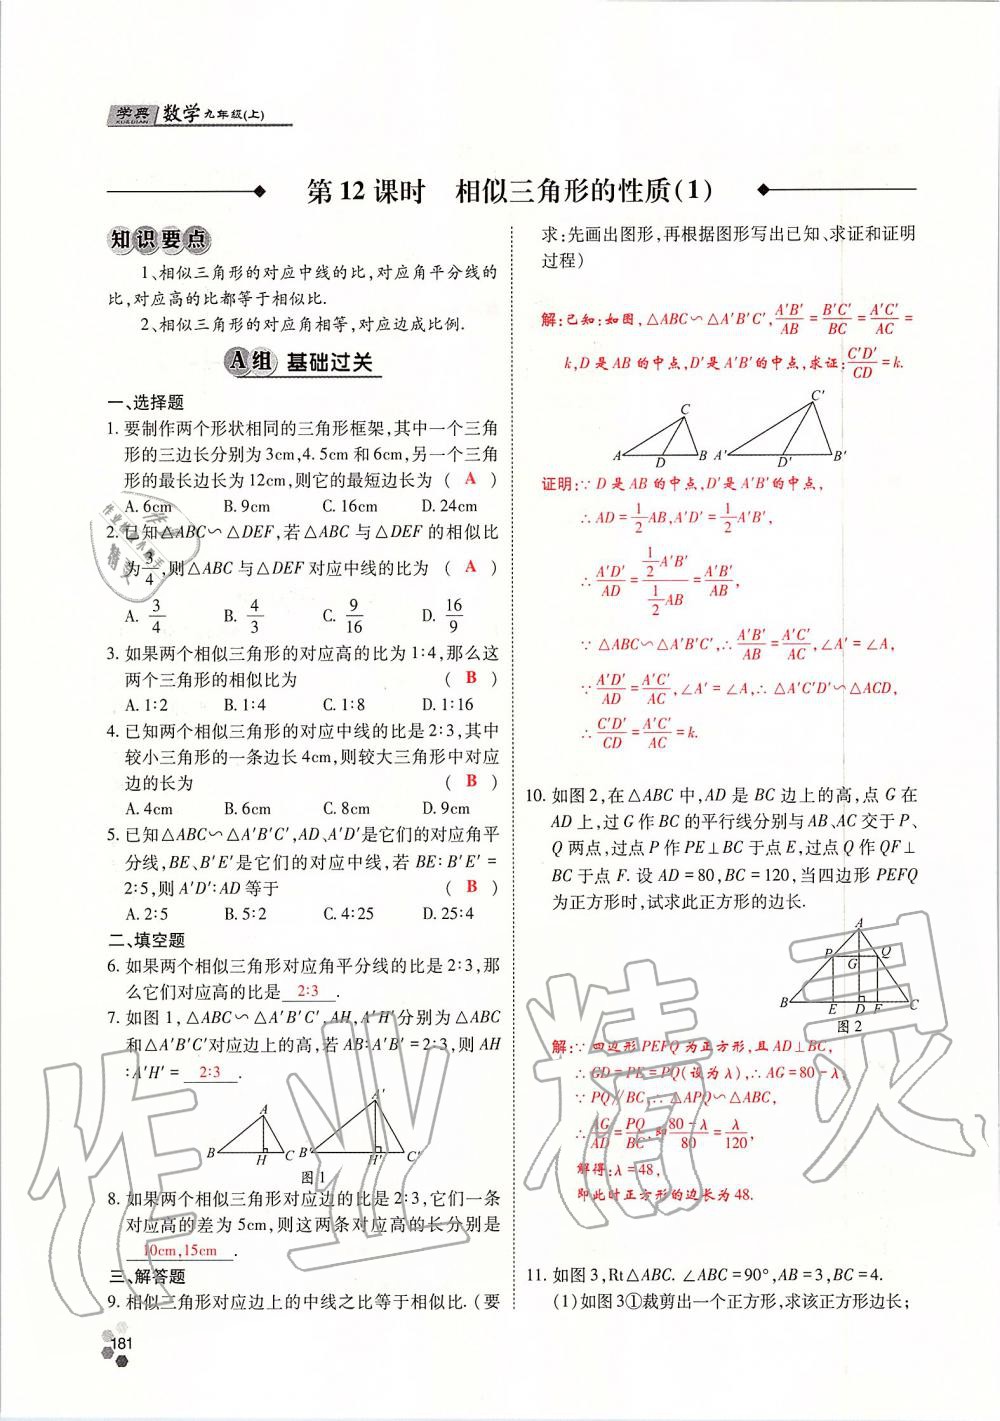 学典 数学九年级(上)
XUEDIAN
第12课时 相似三角形的性质(1)
知识要点
1、相似三角形的对应中线的比,对应角平分线的
比,对应高的比都等于相似比.
2、相似三角形的对应角相等,对应边成比例.
A组 基础过关
一、选择题
1. 要制作两个形状相同的三角形框架,其中一个三角
形的三边长分别为3cm,4.5cm和6cm,另一个三角
形的最长边长为12cm,则它的最短边长为 ( A )
A. 6cm B. 9cm C. 16cm D. 24cm
2. 已知△ABC∽△DEF,若△ABC与△DEF的相似比
为3/4,则△ABC与△DEF对应中线的比为 ( A )
A. 3/4 B. 4/3 C. 9/16 D. 16/9
3. 如果两个相似三角形的对应高的比为1∶4,那么这
两个三角形的相似比为 ( B )
A. 1∶2 B. 1∶4 C. 1∶8 D. 1∶16
4. 已知两个相似三角形的对应中线的比是2∶3,其中
较小三角形的一条边长4cm,则较大三角形中对应
边的长为 ( B )
A. 4cm B. 6cm C. 8cm D. 9cm
5. 已知△ABC∽△A′B′C′,AD、A′D′是它们的对应角平
分线,BE、B′E′是它们的对应中线,若BE∶B′E′=
2∶5,则A′D′∶AD等于 ( B )
A. 2∶5 B. 5∶2 C. 4∶25 D. 25∶4
二、填空题
6. 如果两个相似三角形对应角平分线的比是2∶3,那
么它们对应高的比是 2∶3 .
7. 如图1,△ABC∽△A′B′C′,AH、A′H′分别为△ABC
和△A′B′C′对应边上的高,若AB∶A′B′=2∶3,则AH
∶A′H′= 2∶3 .
A B H C A′ B′ H′ C′
图1
8. 如果两个相似三角形对应边的比是2∶3,它们一条
对应高的差为5cm,则这两条对应高的长分别是
10cm,15cm .
三、解答题
9. 相似三角形对应边上的中线之比等于相似比.(要
181
求:先画出图形,再根据图形写出已知、求证和证明
过程)
解:已知:如图,△ABC∽△A′B′C′,A′B′/AB=B′C′/BC=A′C′/AC=
k,D是AB的中点,D′是A′B′的中点,求证:C′D′/CD=k.
C A D B C′ A′ D′ B′
证明:∵D是AB的中点,D′是A′B′的中点,
∴AD=1/2AB,A′D′=1/2A′B′,
∴A′D′/AD=(1/2A′B′)/(1/2AB)=A′B′/AB,
∵△ABC∽△A′B′C′,∴A′B′/AB=A′C′/AC,∠A′=∠A,
∵A′D′/AD=A′C′/AC,∠A′=∠A,∴△A′C′D′∽△ACD,
∴C′D′/CD=A′C′/AC=k.
10. 如图2,在△ABC中,AD是BC边上的高,点G在
AD上,过G作BC的平行线分别与AB、AC交于P、
Q两点,过点P作PE⊥BC于点E,过点Q作QF⊥
BC于点F.设AD=80,BC=120,当四边形PEFQ
为正方形时,试求此正方形的边长.
A P G Q B E D F C
图2
解:∵四边形PEFQ为正方形,且AD⊥BC,
∴GD=PE=PQ(设为λ),∴AG=80-λ,
∵PQ∥BC,∴△APQ∽△ABC,
∴AG/AD=PQ/BC,即80-λ/80=λ/120,
解得:λ=48,
即此时正方形的边长为48.
11. 如图3,Rt△ABC.∠ABC=90°,AB=3,BC=4.
(1)如图3①裁剪出一个正方形,求该正方形边长;
作业精灵